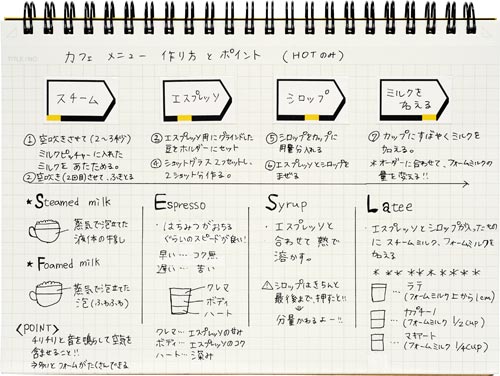 TITLE/NO.
カフェ メニュー 作り方とポイント (HOTのみ)
スチーム
エスプレッソ
シロップ
ミルクを
加える
① 空吹きさせて(2〜3秒)
ミルクピッチャーに入れた
ミルクをあたためる。
② 空吹き(2回目)させ、ふきとる
③ エスプレッソ用にグラインドした
豆をホルダーにセット
④ ショットグラス2つセットし、
2ショット分作る。
⑤ シロップをカップに
用量分入れる
⑥ エスプレッソとシロップを
まぜる
⑦ カップにすばやくミルクを
加える。
*オーダーに合わせて、フォームミルクの
量を変える!!
* Steamed milk
蒸気で泡立てた
液体の牛乳
* Foamed milk
蒸気で泡立てた
泡(ふわふわ)
<POINT>
チリチリと音を鳴らして空気を
含ませること!!
フォームがたくさんできる
Espresso
・はちみつがおちる
ぐらいのスピードが良い!
早い… コク無
遅い… 苦い
クレマ
ボディ
ハート
クレマ… エスプレッソの甘み
ボディ… エスプレッソのコク
ハート… 深み
Syrup
・エスプレッソと
合わせて熱で
溶かす。
シロップはきちんと
最後まで押すこと!!
分量かわるよー!!
Latee
・エスプレッソとシロップが入ったもの
にスチームミルク、フォームミルクを
加える
* * * * * * * * *
… ラテ
(フォームミルク上から1cm)
… カプチーノ
(フォームミルク 1/2cup)
… マキアート
(フォームミルク 1/4cup)